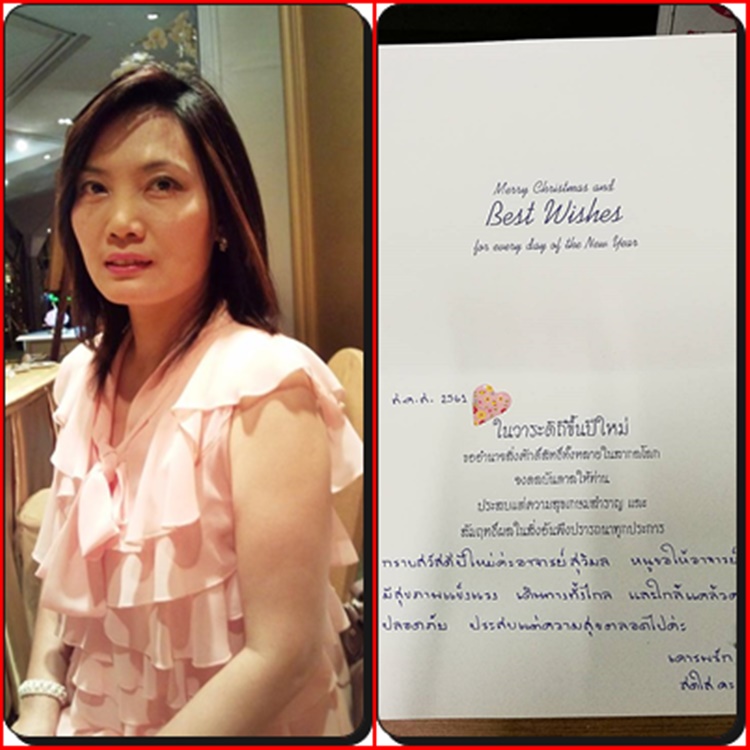 Merry Christmas and
Best Wishes
for every day of the New Year
ส.ค.ส. 2561
ในวาระดิถีขึ้นปีใหม่
ขออำนาจสิ่งศักดิ์สิทธิ์ทั้งหลายในสากลโลก
จงดลบันดาลให้ท่าน
ประสบแต่ความสุขเกษมสำราญ และ
สัมฤทธิ์ผลในสิ่งอันพึงปรารถนาทุกประการ
กราบสวัสดีปีใหม่ค่ะอาจารย์สุวิมล หนูขอให้อาจารย์
มีสุขภาพแข็งแรง เดินทางทั้งไกล และใกล้แคล้วค
ปลอดภัย ประสบแต่ความสุขตลอดไปค่ะ
เคารพรัก